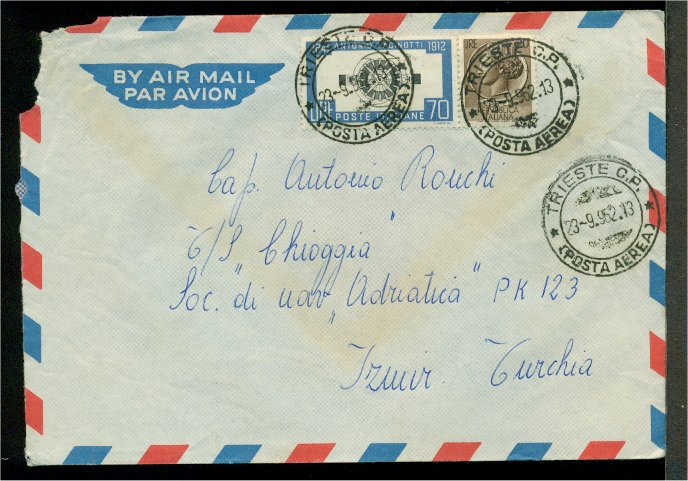 BY AIR MAIL
PAR AVION
ANTONIO PACINOTTI 1912
LIRE POSTE ITALIANE 70
LIRE 20
REPUBBLICA
ITALIANA
TRIESTE C.P.
(POSTA AEREA)
TRIESTE C.P.
23-9.962.13
(POSTA AEREA)
TRIESTE C.P.
23-9.962.13
(POSTA AEREA)
Cap. Antonio Ronchi
T/S "Chioggia"
Soc. "di nav Adriatica" PK 123
Izmir. Turchia